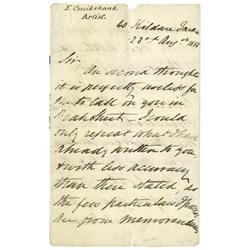 F. Cruikshank.
Artist.
40 Kildare
23rd Augst 18
Sir
On second thoughts
it is perfectly useless for
me to call on you in
Beak Street I could
only repeat what I have
already written to you
& with less accuracy
than there stated, as
the few particulars I
are from memorandum